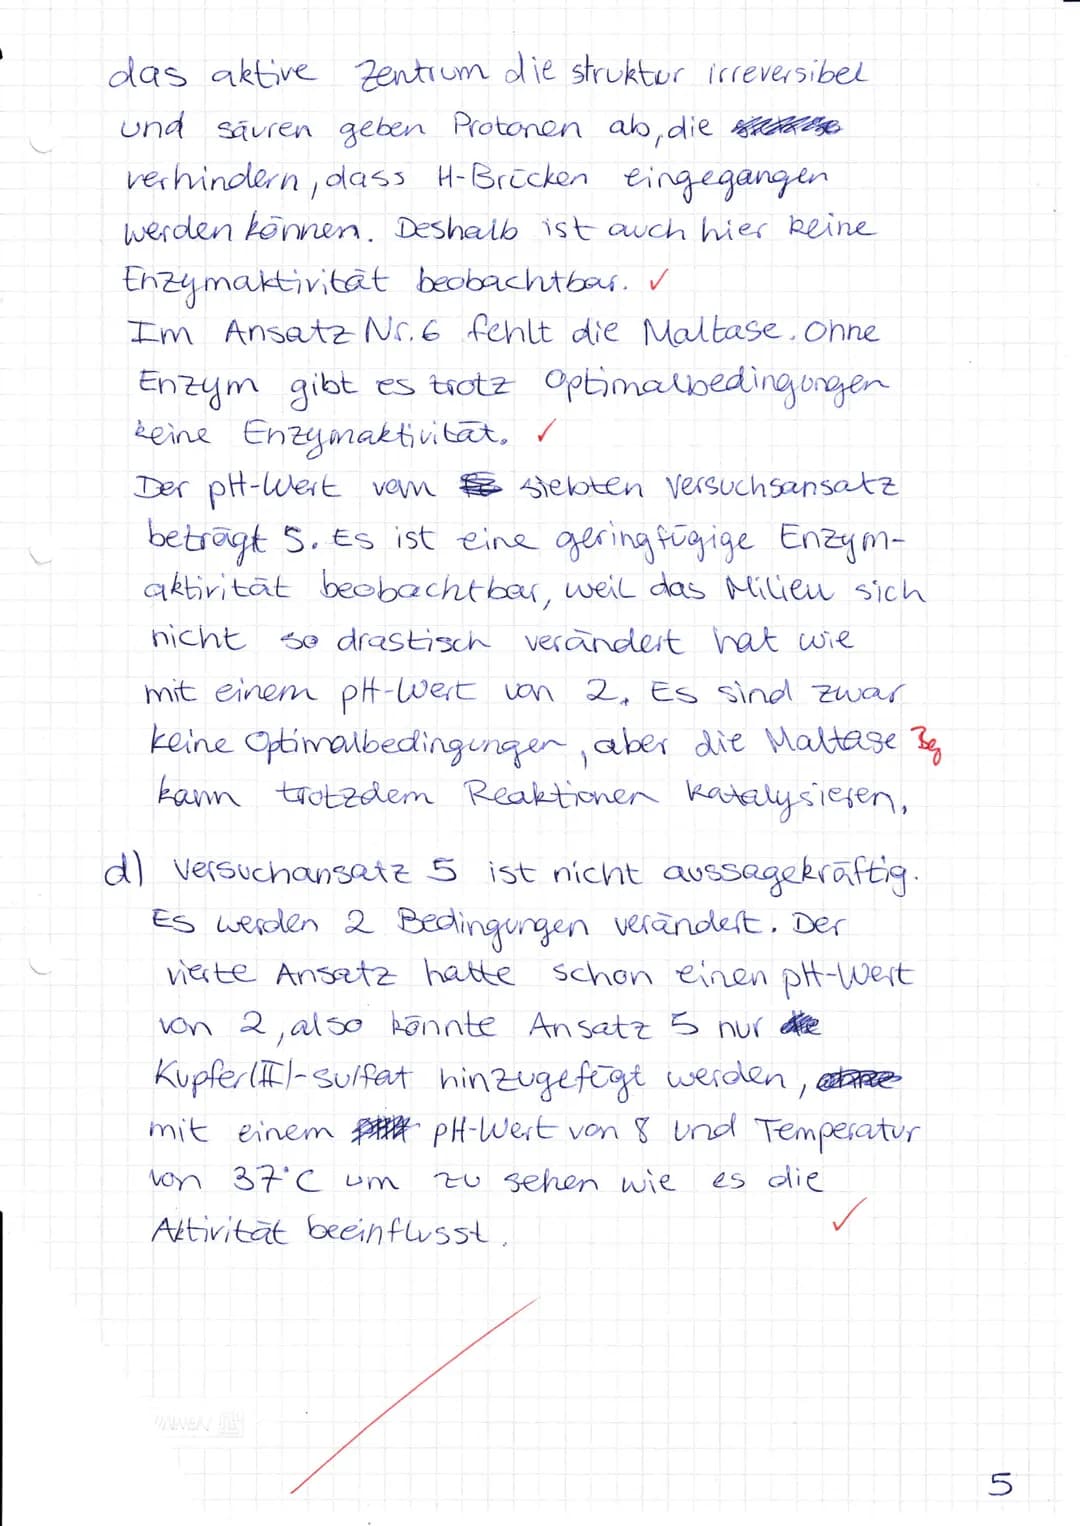 das aktive Zentrum die struktur irreversibel
und säuren geben Protonen ab, die
verhindern, dass H-Brücken eingegangen
werden können. Deshalb ist auch hier keine
Enzymaktivität beobachtbar. ✓
Im Ansatz Nr. 6 fehlt die Maltase. Ohne
Enzym gibt es trotz Optimalbedingungen
keine Enzymaktivität. ✓
Der pH-Wert vom siebten Versuchsansatz
beträgt 5. Es ist eine geringfügige Enzym-
aktivität beobachtbar, weil das Milieu sich
nicht so drastisch verändert hat wie
mit einem pH-Wert von 2. Es sind zwar
keine Optimalbedingungen, aber die Maltase
kann trotzdem Reaktionen katalysieren.
d) Versuchansatz 5 ist nicht aussagekräftig.
Es werden 2 Bedingungen verändert. Der
vierte Ansatz hatte schon einen pH-Wert
von 2, also könnte Ansatz 5 nur
Kupfer(II)-sulfat hinzugefügt werden,
mit einem pH-Wert von 8 und Temperatur
von 37°C um zu sehen wie es die
Aktivität beeinflusst. ✓
5